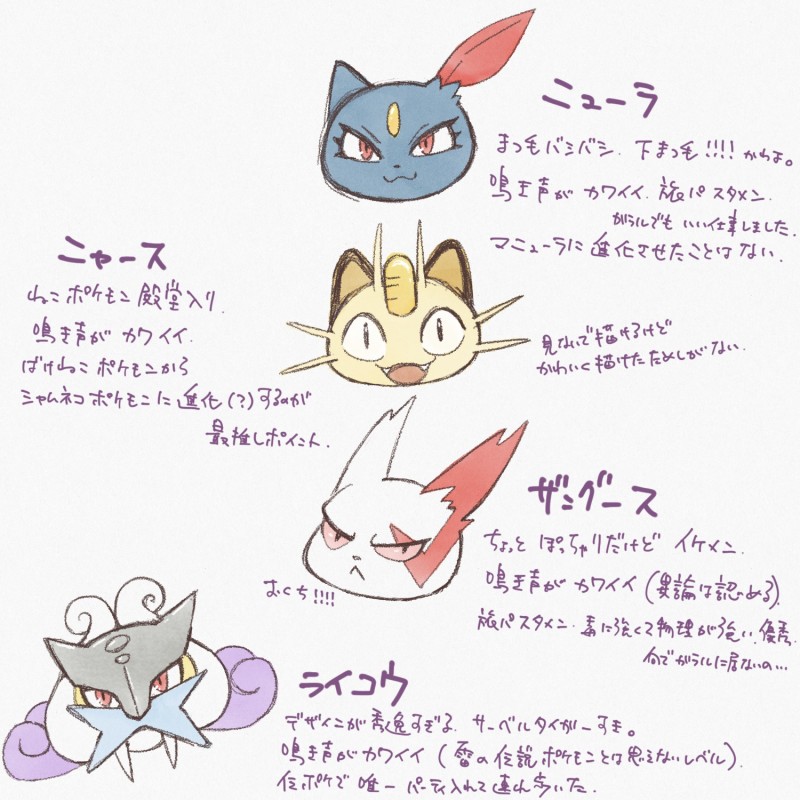 ニューラ
まつ毛バシバシ. 下まつ毛!!!! かわよ。
鳴き声が カワイイ. 旅パスタメン.
ガラルでも いい仕事しました.
マニューラに 進化させたことはない.
ニャース
ねこポケモン殿堂入り.
鳴き声が カワイイ.
ばけねこポケモンから
シャムネコポケモンに 進化(?)するのが
最推しポイント.
見ないで描けるけど
かわいく描けたためしがない.
ザングース
ちょっと ぽっちゃりだけど イケメン.
鳴き声が カワイイ (異論は認める).
旅パスタメン. 毒に強くて物理が強い. 優秀.
何でガラルに居ないの...
むくち!!!!
ライコウ
デザインが秀逸すぎる. サーベルタイガーすき。
鳴き声がカワイイ (雷の伝説ポケモンとは思えないレベル).
伝ポケで 唯一 パーティ入れて連れ歩いた.